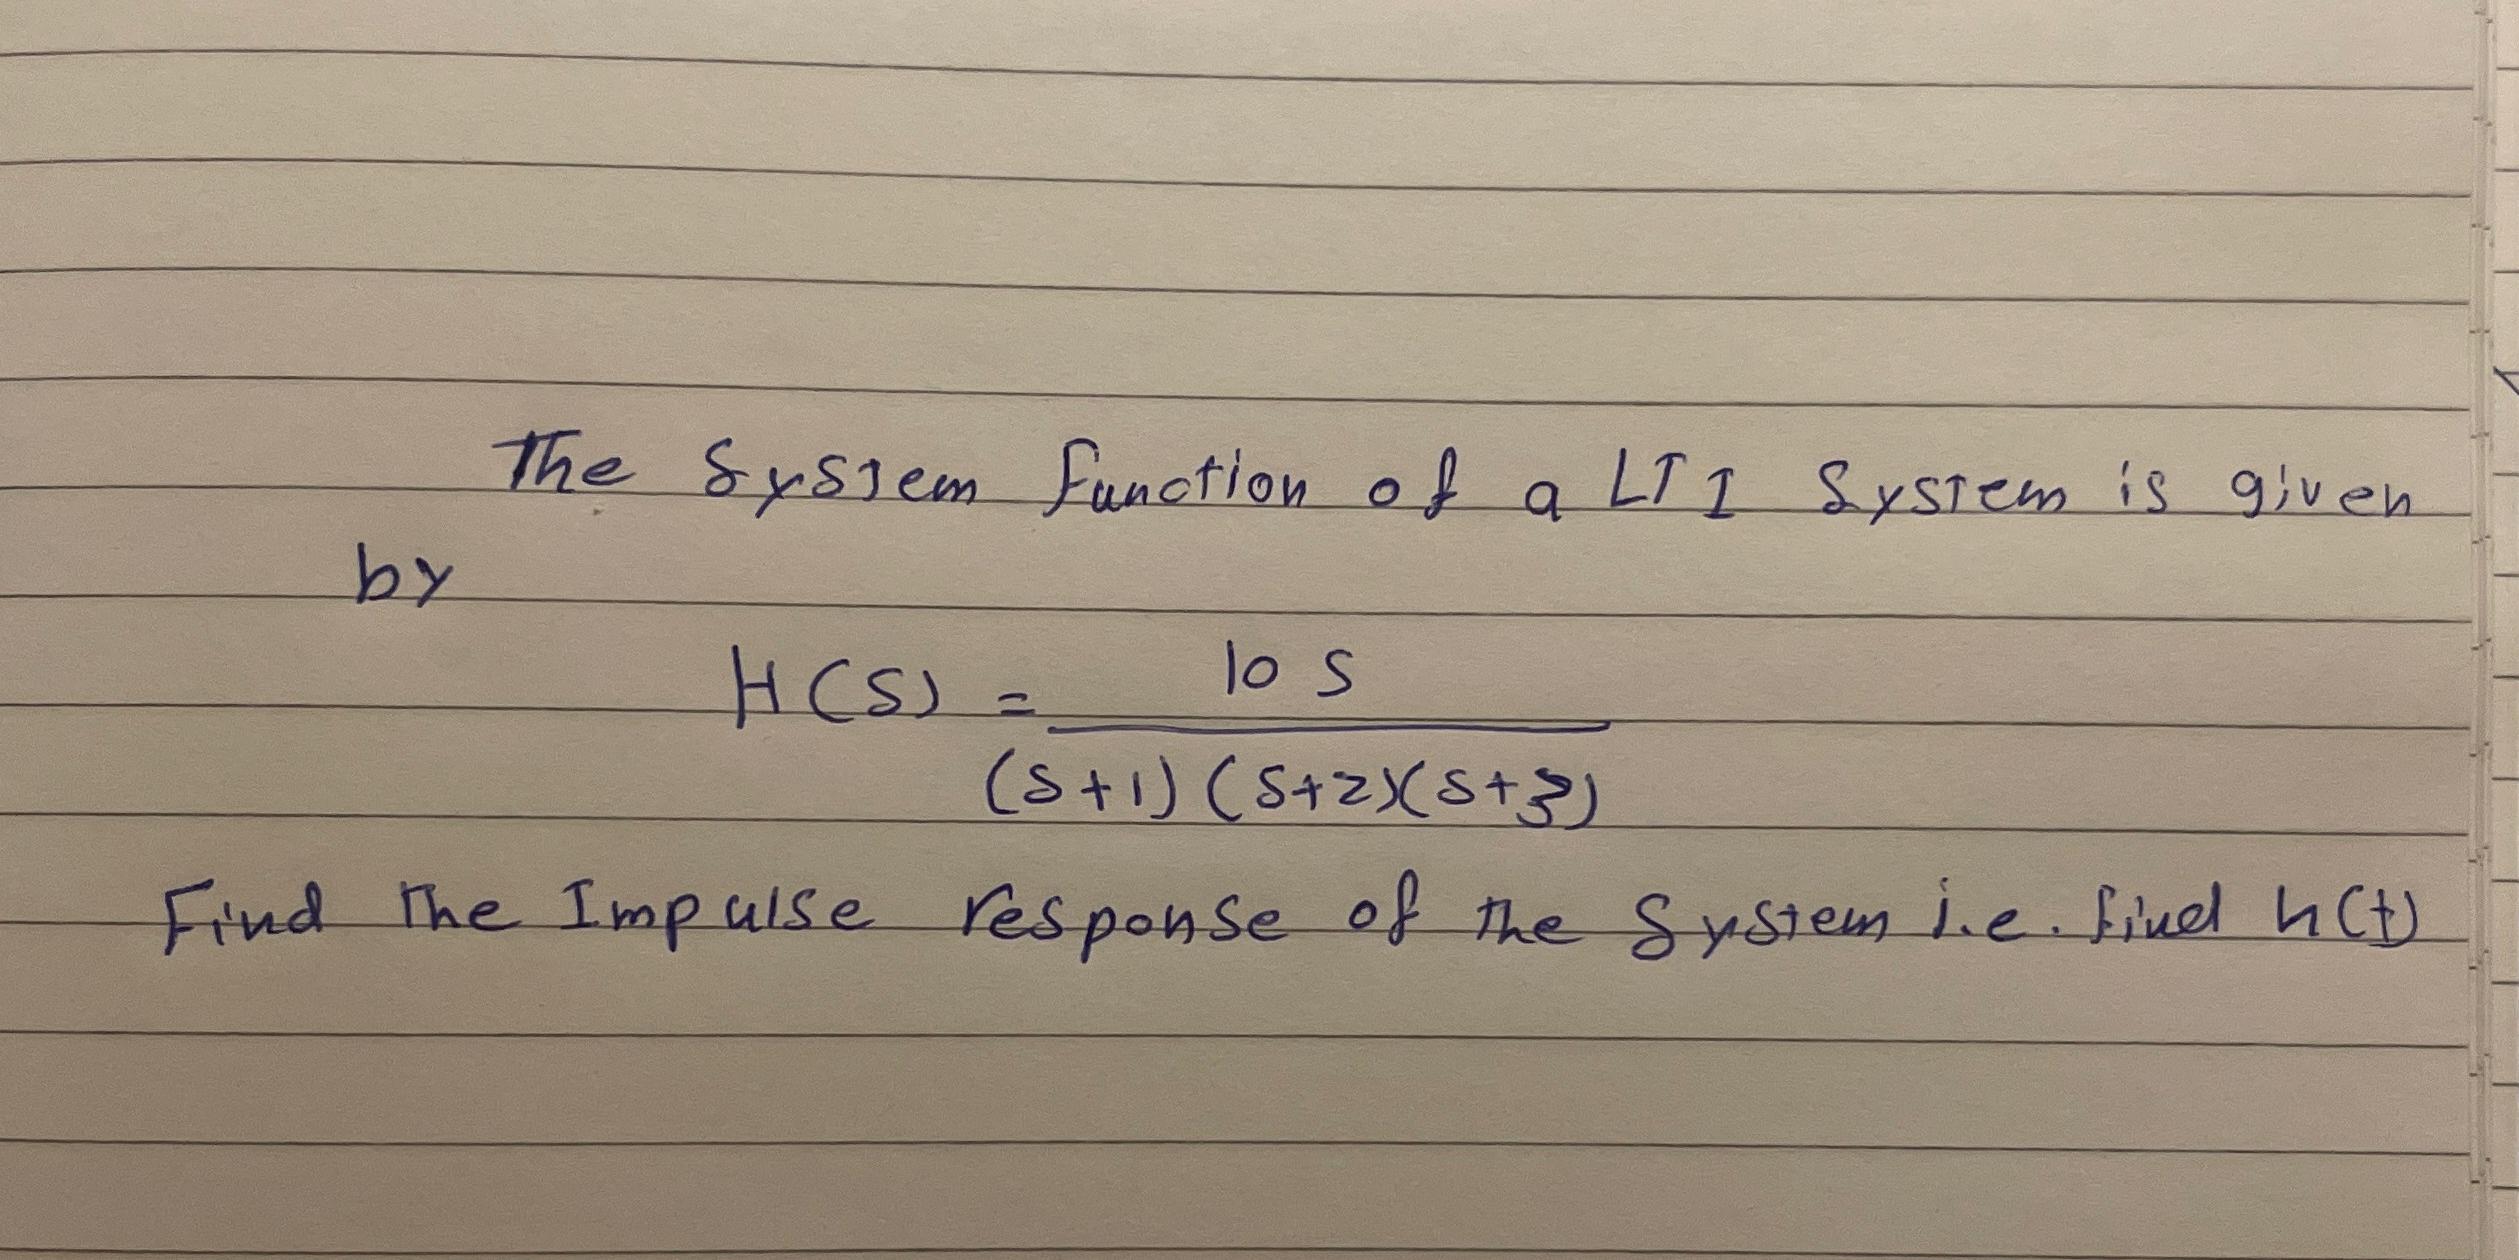 The System function of a LTI System is given
by
H(S) = 10 S / (S+1) (S+2)(S+3)
Find The Impulse response of The System i.e. find h(t)